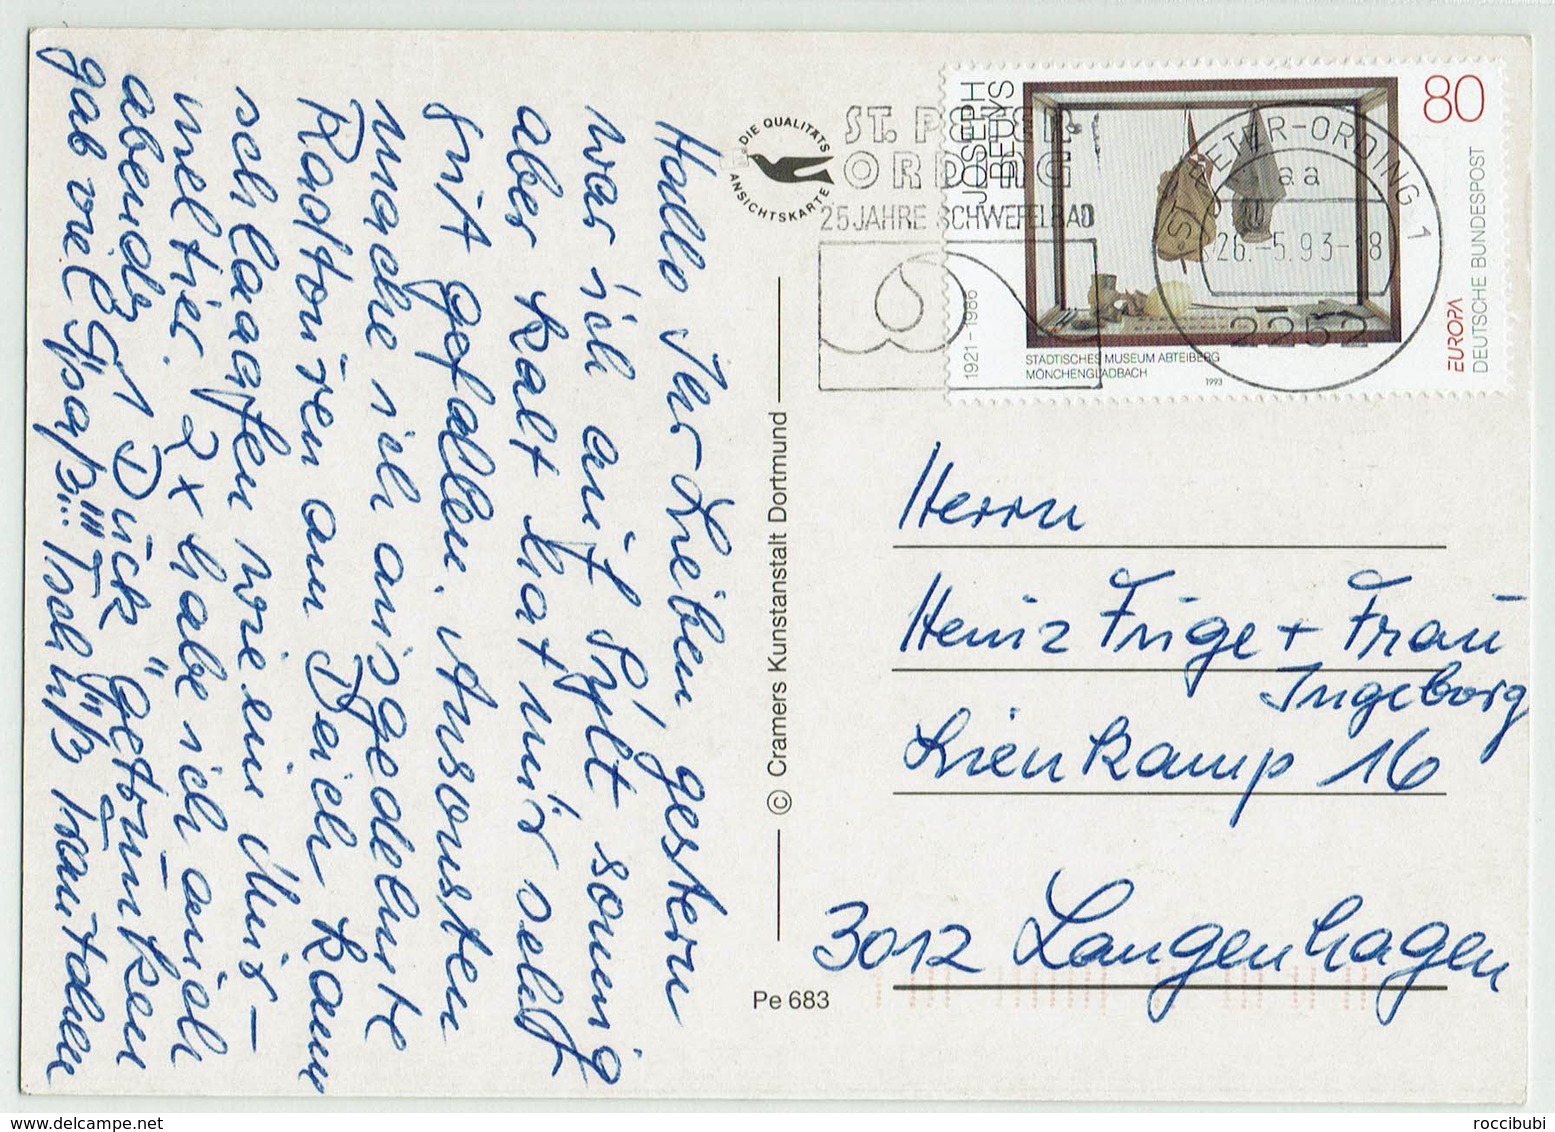 Hallo Ihr Lieben, gestern
war ich auf Sylt sonnig
aber kalt hat mir sehr
gut gefallen. Ansonsten
mache ich ausgedehnte
Radtouren am Deich kann
schlaaafen wie ein Mur-
meltier. 2x habe ich auch
abends 1 Duck "getrunken
gab viel Spaß!!! Tschüß
DIE QUALITÄTS
ANSICHTSKARTE
© Cramers Kunstanstalt Dortmund
Pe 683
ST. PETER
ORDING
25 JAHRE SCHWEFELBAD
JOSEPH
BEUYS
1921-1986
80
STÄDTISCHES MUSEUM ABTEIBERG
MÖNCHENGLADBACH
1993
EUROPA
DEUTSCHE BUNDESPOST
ST. PETER-ORDING 1
aa
26.-5.93-18
2252
Herrn
Heinz Frige + Frau
Ingeborg
Lienkamp 16
3012 Langenhagen
roccibubi